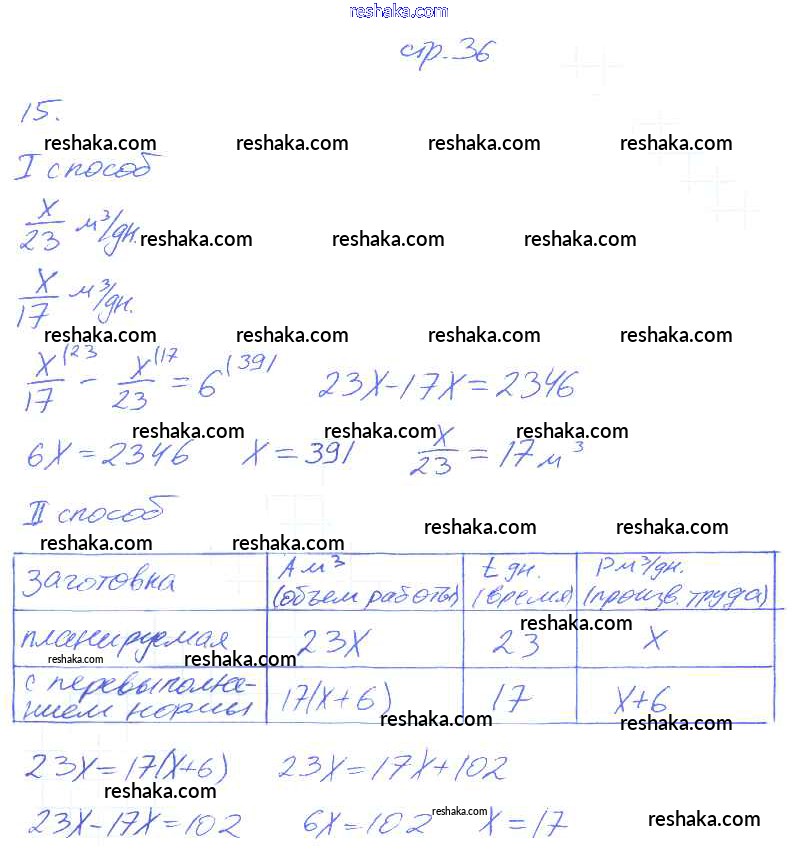 reshaka.com
стр. 36
15.
reshaka.com reshaka.com reshaka.com reshaka.com
I способ
x/23 м³/дн.
reshaka.com reshaka.com reshaka.com
x/17 м³/дн.
reshaka.com reshaka.com reshaka.com reshaka.com
x/17 (23 - x/23 (17 = 6 (391 23x-17x=2346
reshaka.com reshaka.com reshaka.com
6x=2346 x=391 x/23 = 17 м³
II способ
reshaka.com reshaka.com
reshaka.com reshaka.com
заготовка A м³ (объем работы) t дн. (время) P м³/дн. (произв. труда)
reshaka.com
планируемая 23x 23 x
reshaka.com reshaka.com
с перевыполне-
нием нормы 17(x+6) 17 x+6
reshaka.com reshaka.com
23x=17(x+6) 23x=17x+102
reshaka.com reshaka.com reshaka.com
23x-17x=102 6x=102 x=17